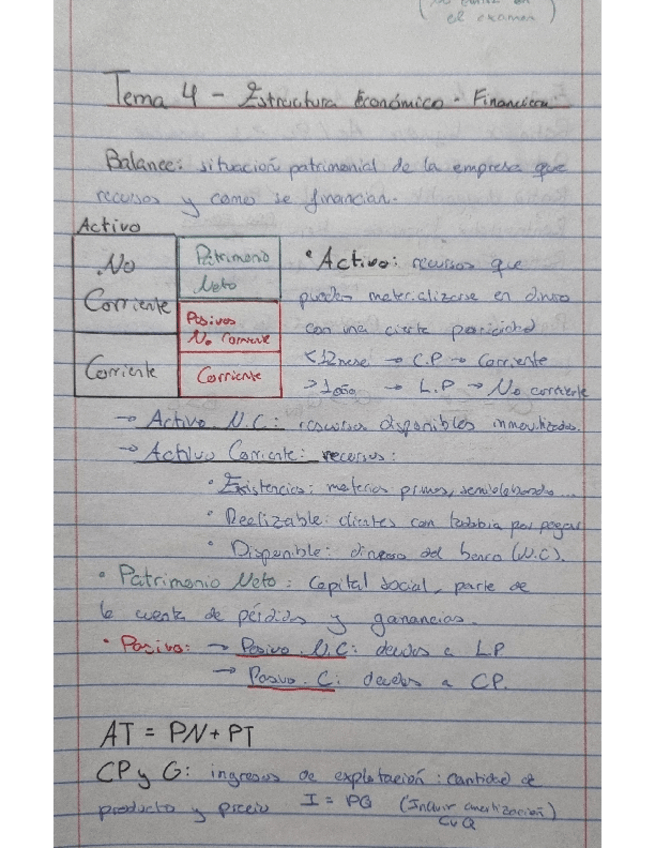 el examen)
Tema 4 - Estructura Económico - Financiera.
Balance: situación patrimonial de la empresa que
recursos y como se financian.
Activo
No
Corriente
Corriente
Patrimonio
Neto
Pasivos
No Corriente
Corriente
• Activo: recursos que
pueden materializarse en dinero
con una cierta
<12 mese → C.P → Corriente
>1año → L.P → No corriente
→ Activo N.C: recursos disponibles inmovilizados.
→ Activo Corriente: recursos:
• Existencias: materias primas, semielaborado...
• Realizable: clientes con por pagar
• Disponible: dinero del banco (N.C).
• Patrimonio Neto: Capital social, parte de
la cuenta de pérdidas y ganancias.
• Pasivo: → Pasivo N.C: deudas a LP
→ Pasivo. C: deudas a CP.
AT = PN + PT
CP y G: ingresos de explotación: cantidad de
producto y precio I = PQ (Incluir amortización)
CvQ